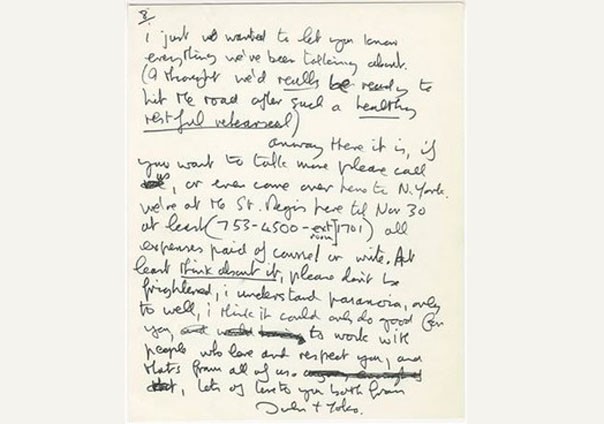 8
i just wanted to let you know
everything we've been talking about.
(I thought we'd really be ready to
hit the road after such a healthy
restful rehearsal)
anyway there it is, if
you want to talk more please call
us, or even come over here to N. York.
we're at the St. Regis here til Nov 30
at least (753-4500-ext room 1701) all
expenses paid of course! or write. At
least think about it, please don't be
frightened, i understand paranoia, only
to well, i think it could only do good for
you, to work with
people who love and respect you, and
that's from all of us.
lots of love to you both from
John + Yoko.